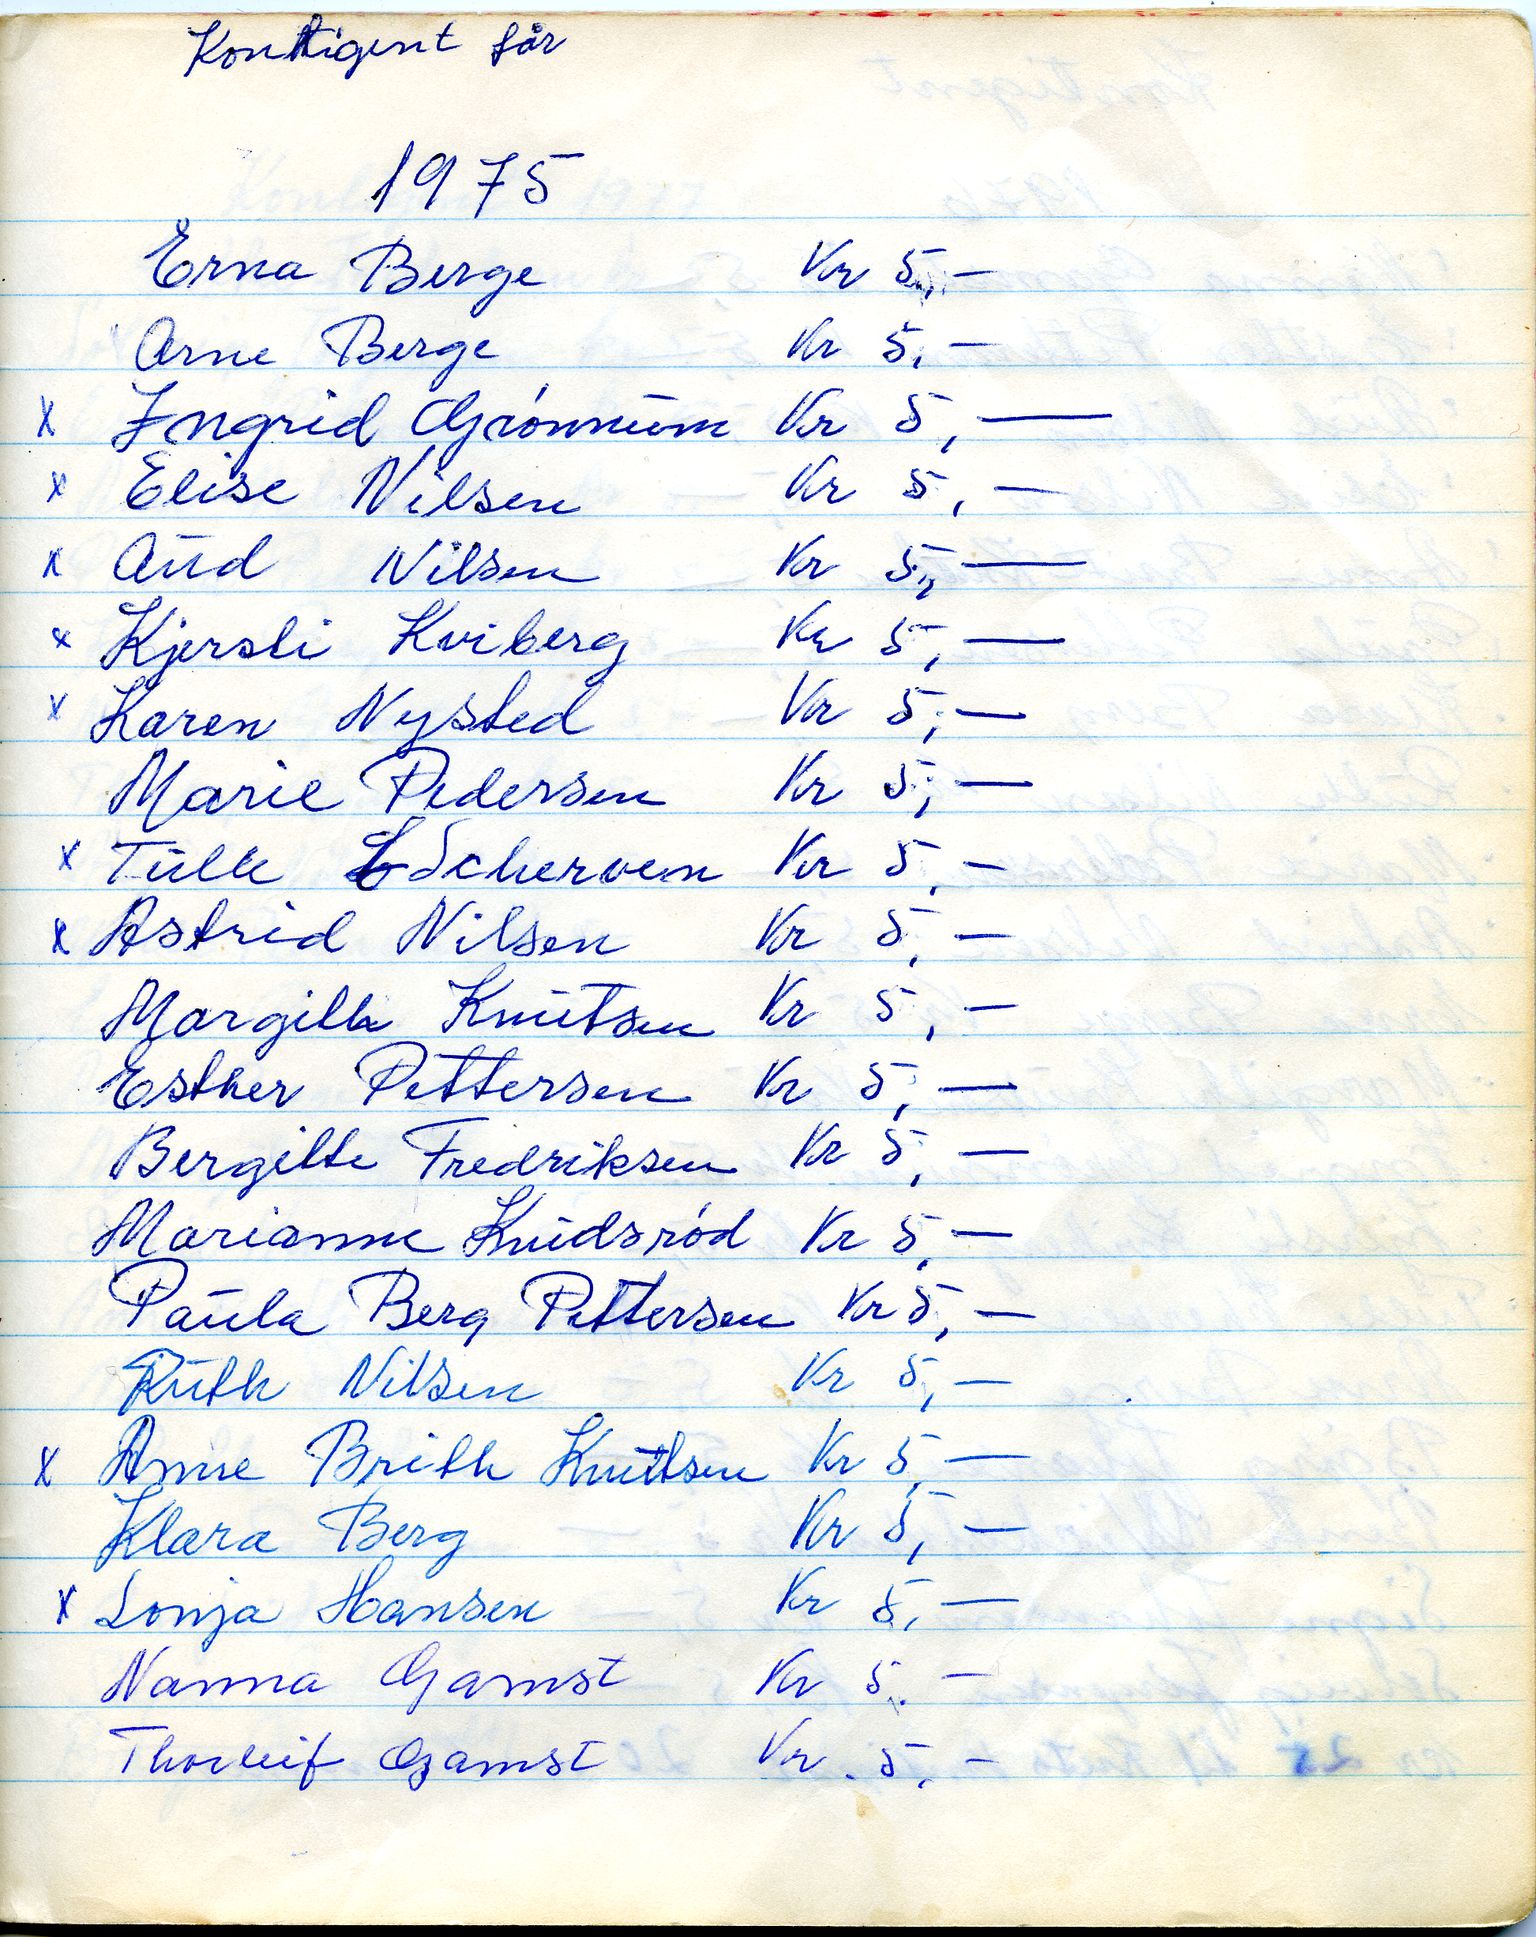 Kontigent får
1975
Erna Berge Kr 5,—
Arne Berge Kr 5,—
x Ingrid Grönnum Kr 5,—
x Elise Nilsen Kr 5,—
x Aud Nilsen Kr 5,,—
x Kjersti Kviberg Kr 5,—
x Karen Nysted Kr 5,—
Marie Pedersen Kr 5,—
x Tulle Scherven Kr 5,—
x Astrid Nilsen Kr 5,—
Margith Knutsen Kr 5,—
Esther Pettersen Kr 5,—
Bergitte Fredriksen Kr 5,—
Marianne Knudsród Kr 5,—
Paula Berg Pettersen Kr 5,—
Ruth Nilsen Kr 5,—
x Anne Brith Knutsen Kr 5,—
Klara Berg Kr 5,—
x Sonja Hansen Kr 5,—
Nanna Gamst Kr 5,—
Thorleif Gamst Kr. 5,—